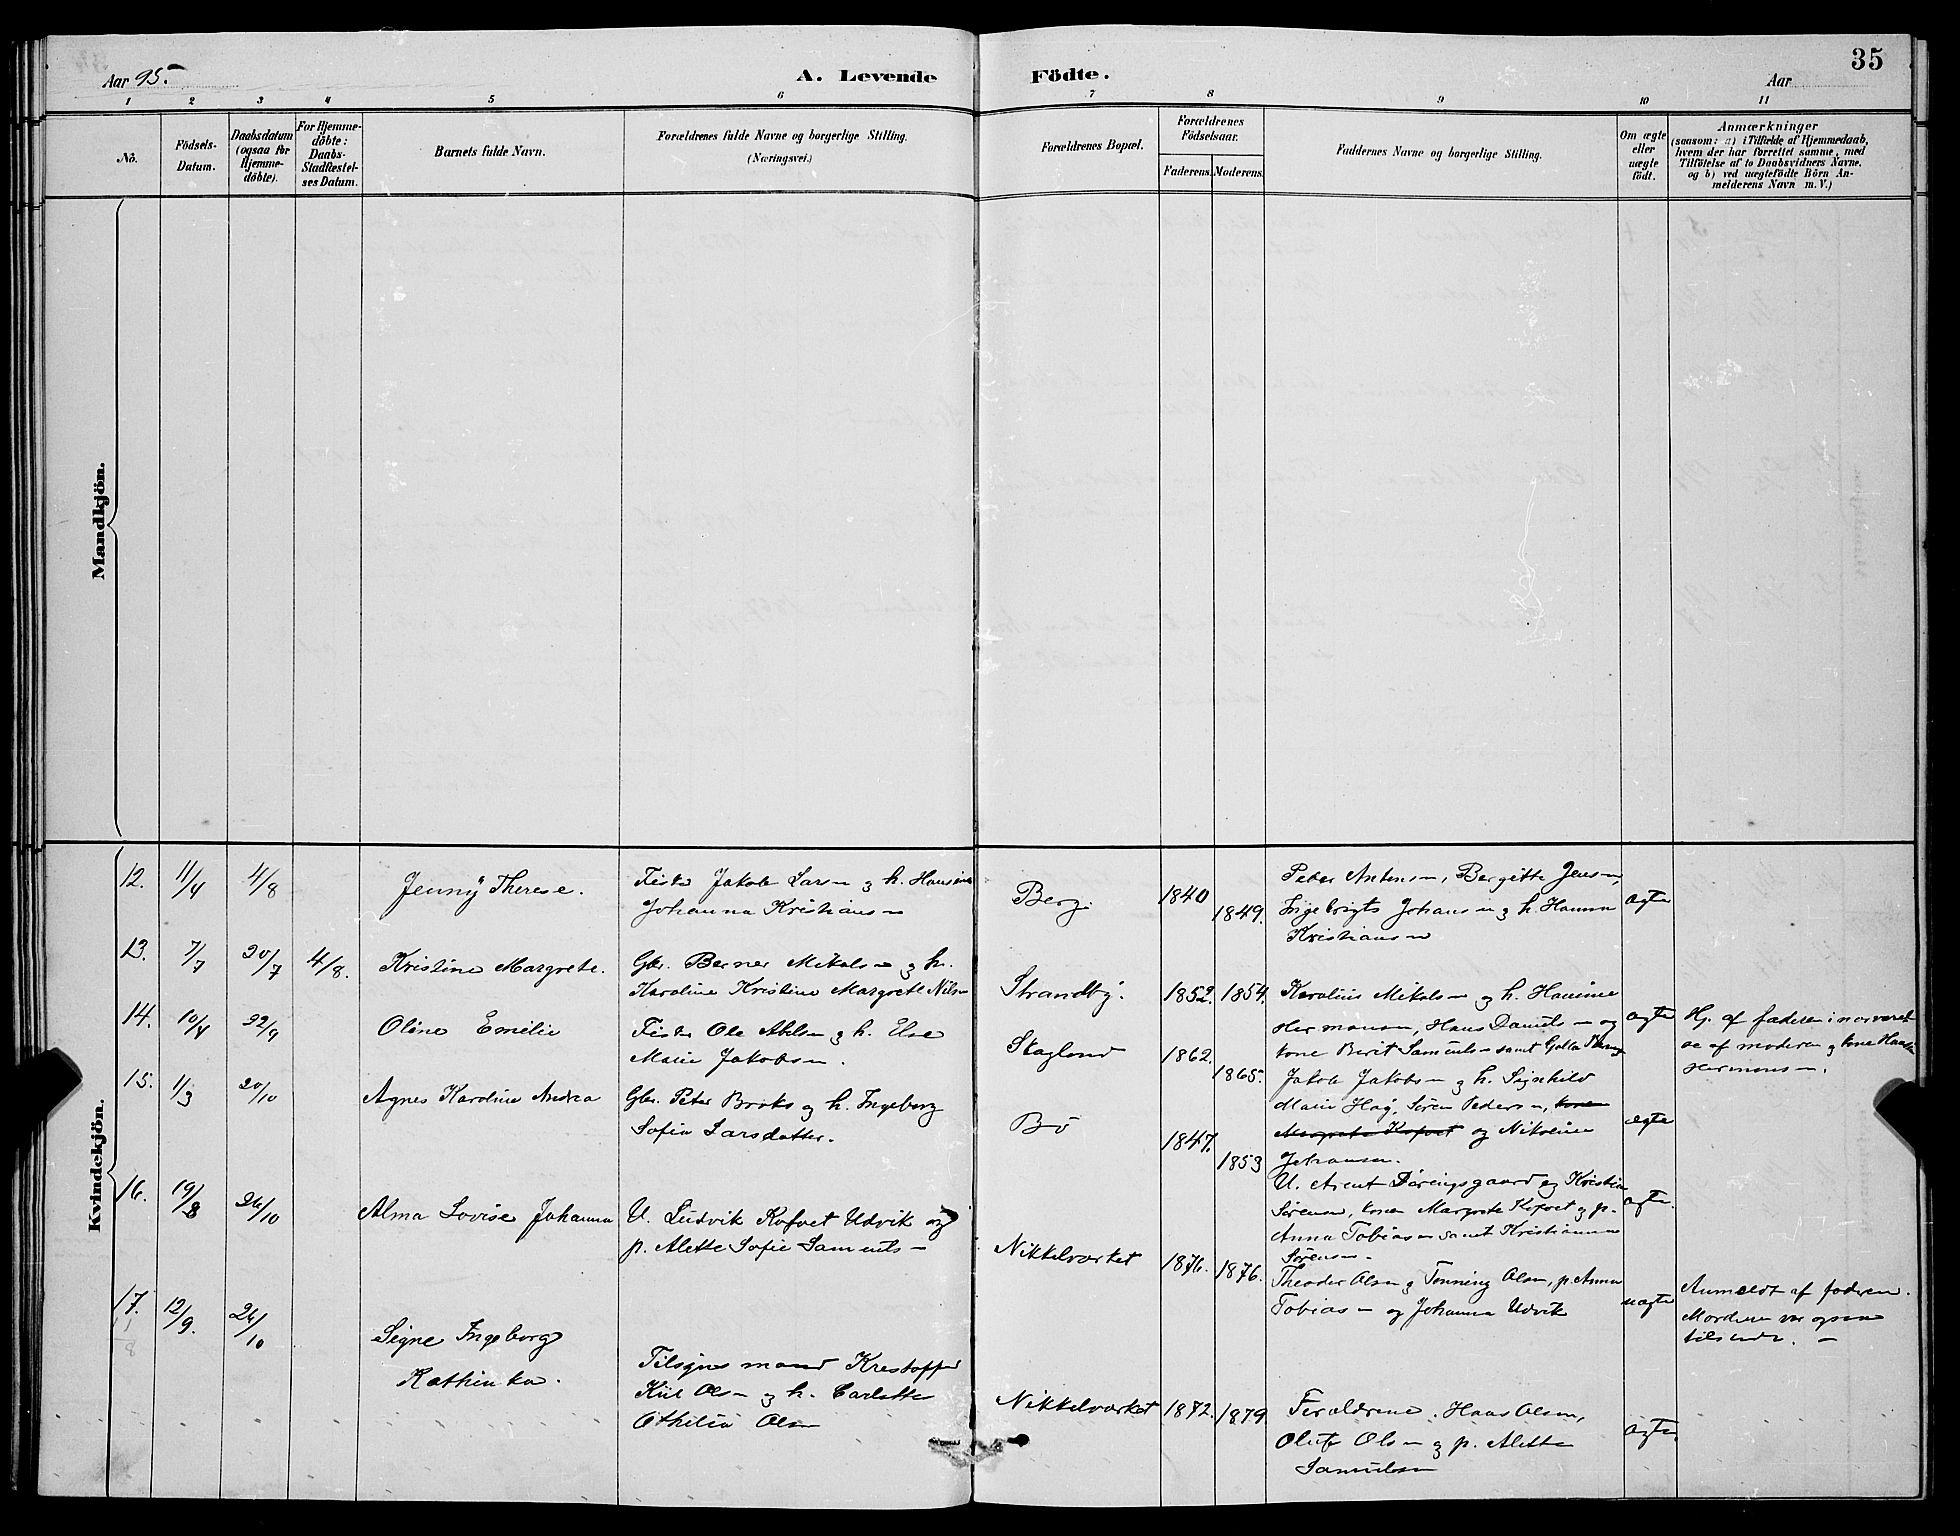 Aar 95.
A. Levende Födte.
Aar
35
1 2 3 4 5 6 7 8 9 10 11
No.
Födsels-
Datum.
Daabsdatum
(ogsaa for
Hjemme-
döbte).
For Hjemme-
döbte:
Daabs-
Stadfæstel-
ses Datum.
Barnets fulde Navn.
Forældrenes fulde Navne og borgerlige Stilling.
(Næringsvei.)
Forældrenes Bopæl.
Forældrenes
Födselsaar.
Faderens. Moderens.
Faddernes Navne og borgerlige Stilling.
Om ægte
eller
uægte
födt.
Anmærkninger
(saasom: a) i Tilfælde af Hjemmedaab,
hvem der har forrettet samme, med
Tilföielse af to Daabsvidners Navne,
og b) ved uægtefödte Börn An-
melderens Navn m. V.)
Mandkjön.
Kvindekjön.
12. 11/4 4/8
Jenny Therese.
Fisker Jakob Larsen og h. Hansine
Johanna Kristiansen
Berg.
1840
1849.
Peder Antonsen, Bergitte Jensen,
Ingebrigts Johansen og h. Hanna
Kristiansen
ægte
13. 7/7 20/7 4/8.
Kristine Margrete.
Gbr. Berner Mikalsen og h.
Karoline Kristine Margrete Nilsen
Strandby.
1852. 1854.
Karolius Mikalsen og h. Hansine
Hermansen, Hans Danielsen og
kone Berit Samuelsen samt Golla
ægte
Hj. af faderen i nærværel-
se af moderen og kone Hansine
Hermansen.
14. 10/4 22/9
Oline Emelie
Fisker Ole Abelsen og h. Else
Marie Jakobsen.
Skaglund
1862.
1865.
Jakob Jakobsen og h. Signhild
Marie Hag, Sören Pedersen, kone
Margrete Kofoet og Nikoline
Johansen.
15. 1/3 20/10
Agnes Karoline Andrea
Gbr. Peter Broks og h. Ingeborg
Sofie Larsdatter.
Bö
1847.
1853
U. Arent Döringsgaard og Kristian
Sörensen, konen Margrete Kofoet og p.
Anna Tobiassen samt Kristianna
Sörensen
ægte
16. 19/8 26/10
Alma Lovise Johanna
U. Ludvik Kofoet Udvik og
p. Alette Sofie Samuelsen
Nikkelværket
1876. 1876.
Theodor Olsen og Tönning Olsen, p. Anna
Tobiassen og Johanna Udvik
ægte.
uægte
Anmeldt af faderen.
Moderen var ogsaa
tilstede.
17. 12/9. 26/10
Signe Ingeborg
Kathinka.
Tilsynsmand Kristoffer
Kiil Olsen og h. Carlotte
Othilie Olsen
Nikkelværket
1872. 1879.
Forældrene, Hans Olsen,
Oluf Olsen og p. Alette
Samuelsen
ægte.